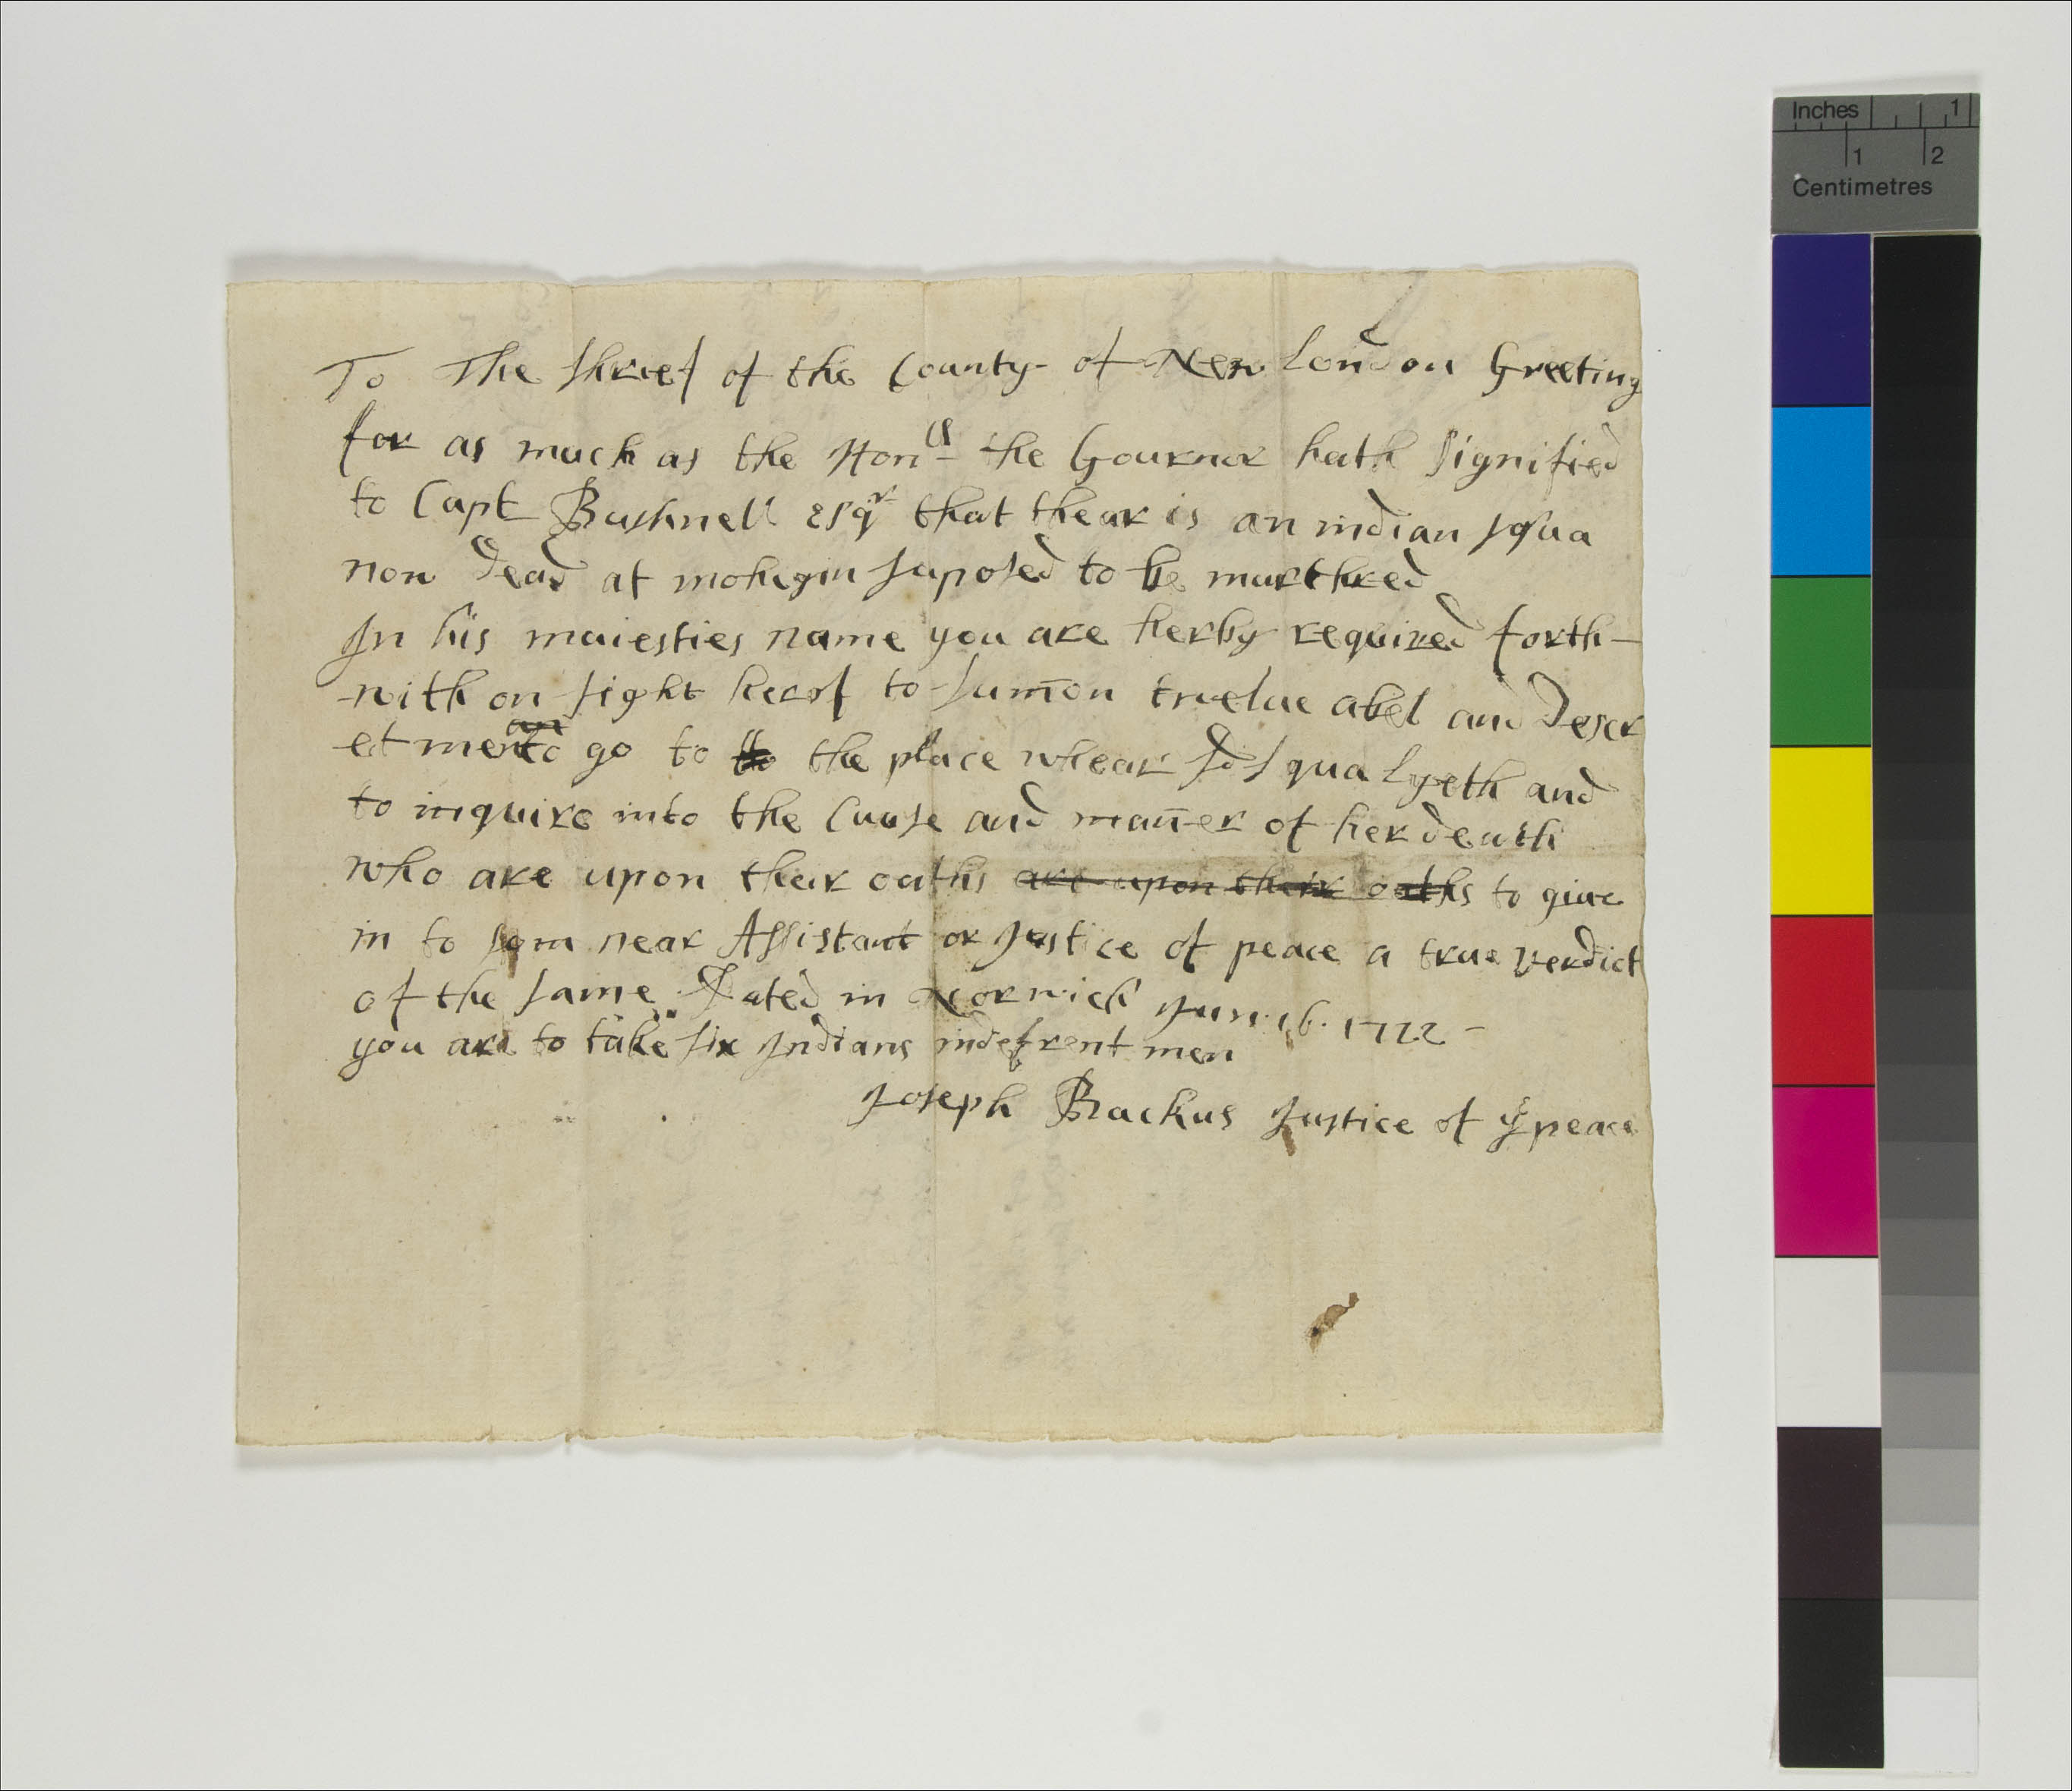 To The shrief of the County of New London Greeting
for as much as the Honll the Gournor hath signified
to Capt Bushnell Esqr that thear is an indian squa
now dead at mohegin suposed to be murthred
In his maiesties name you are herby required forth-
-with on sight herof to sum̄on twelue abel and descr
an
et men to go to the the place whear sd squa lyeth and
to inquire into the cause and man̄er of her death
who are upon thear oaths are upon their oaths to giue
in to som near Assistant or justice of peace a true verdict
of the same. Dated in Norwich Jun. 16. 1722 -
you are to take six Indians indefrent men
Joseph Backus Justice of ye peace
Inches 1
1 2
Centimetres